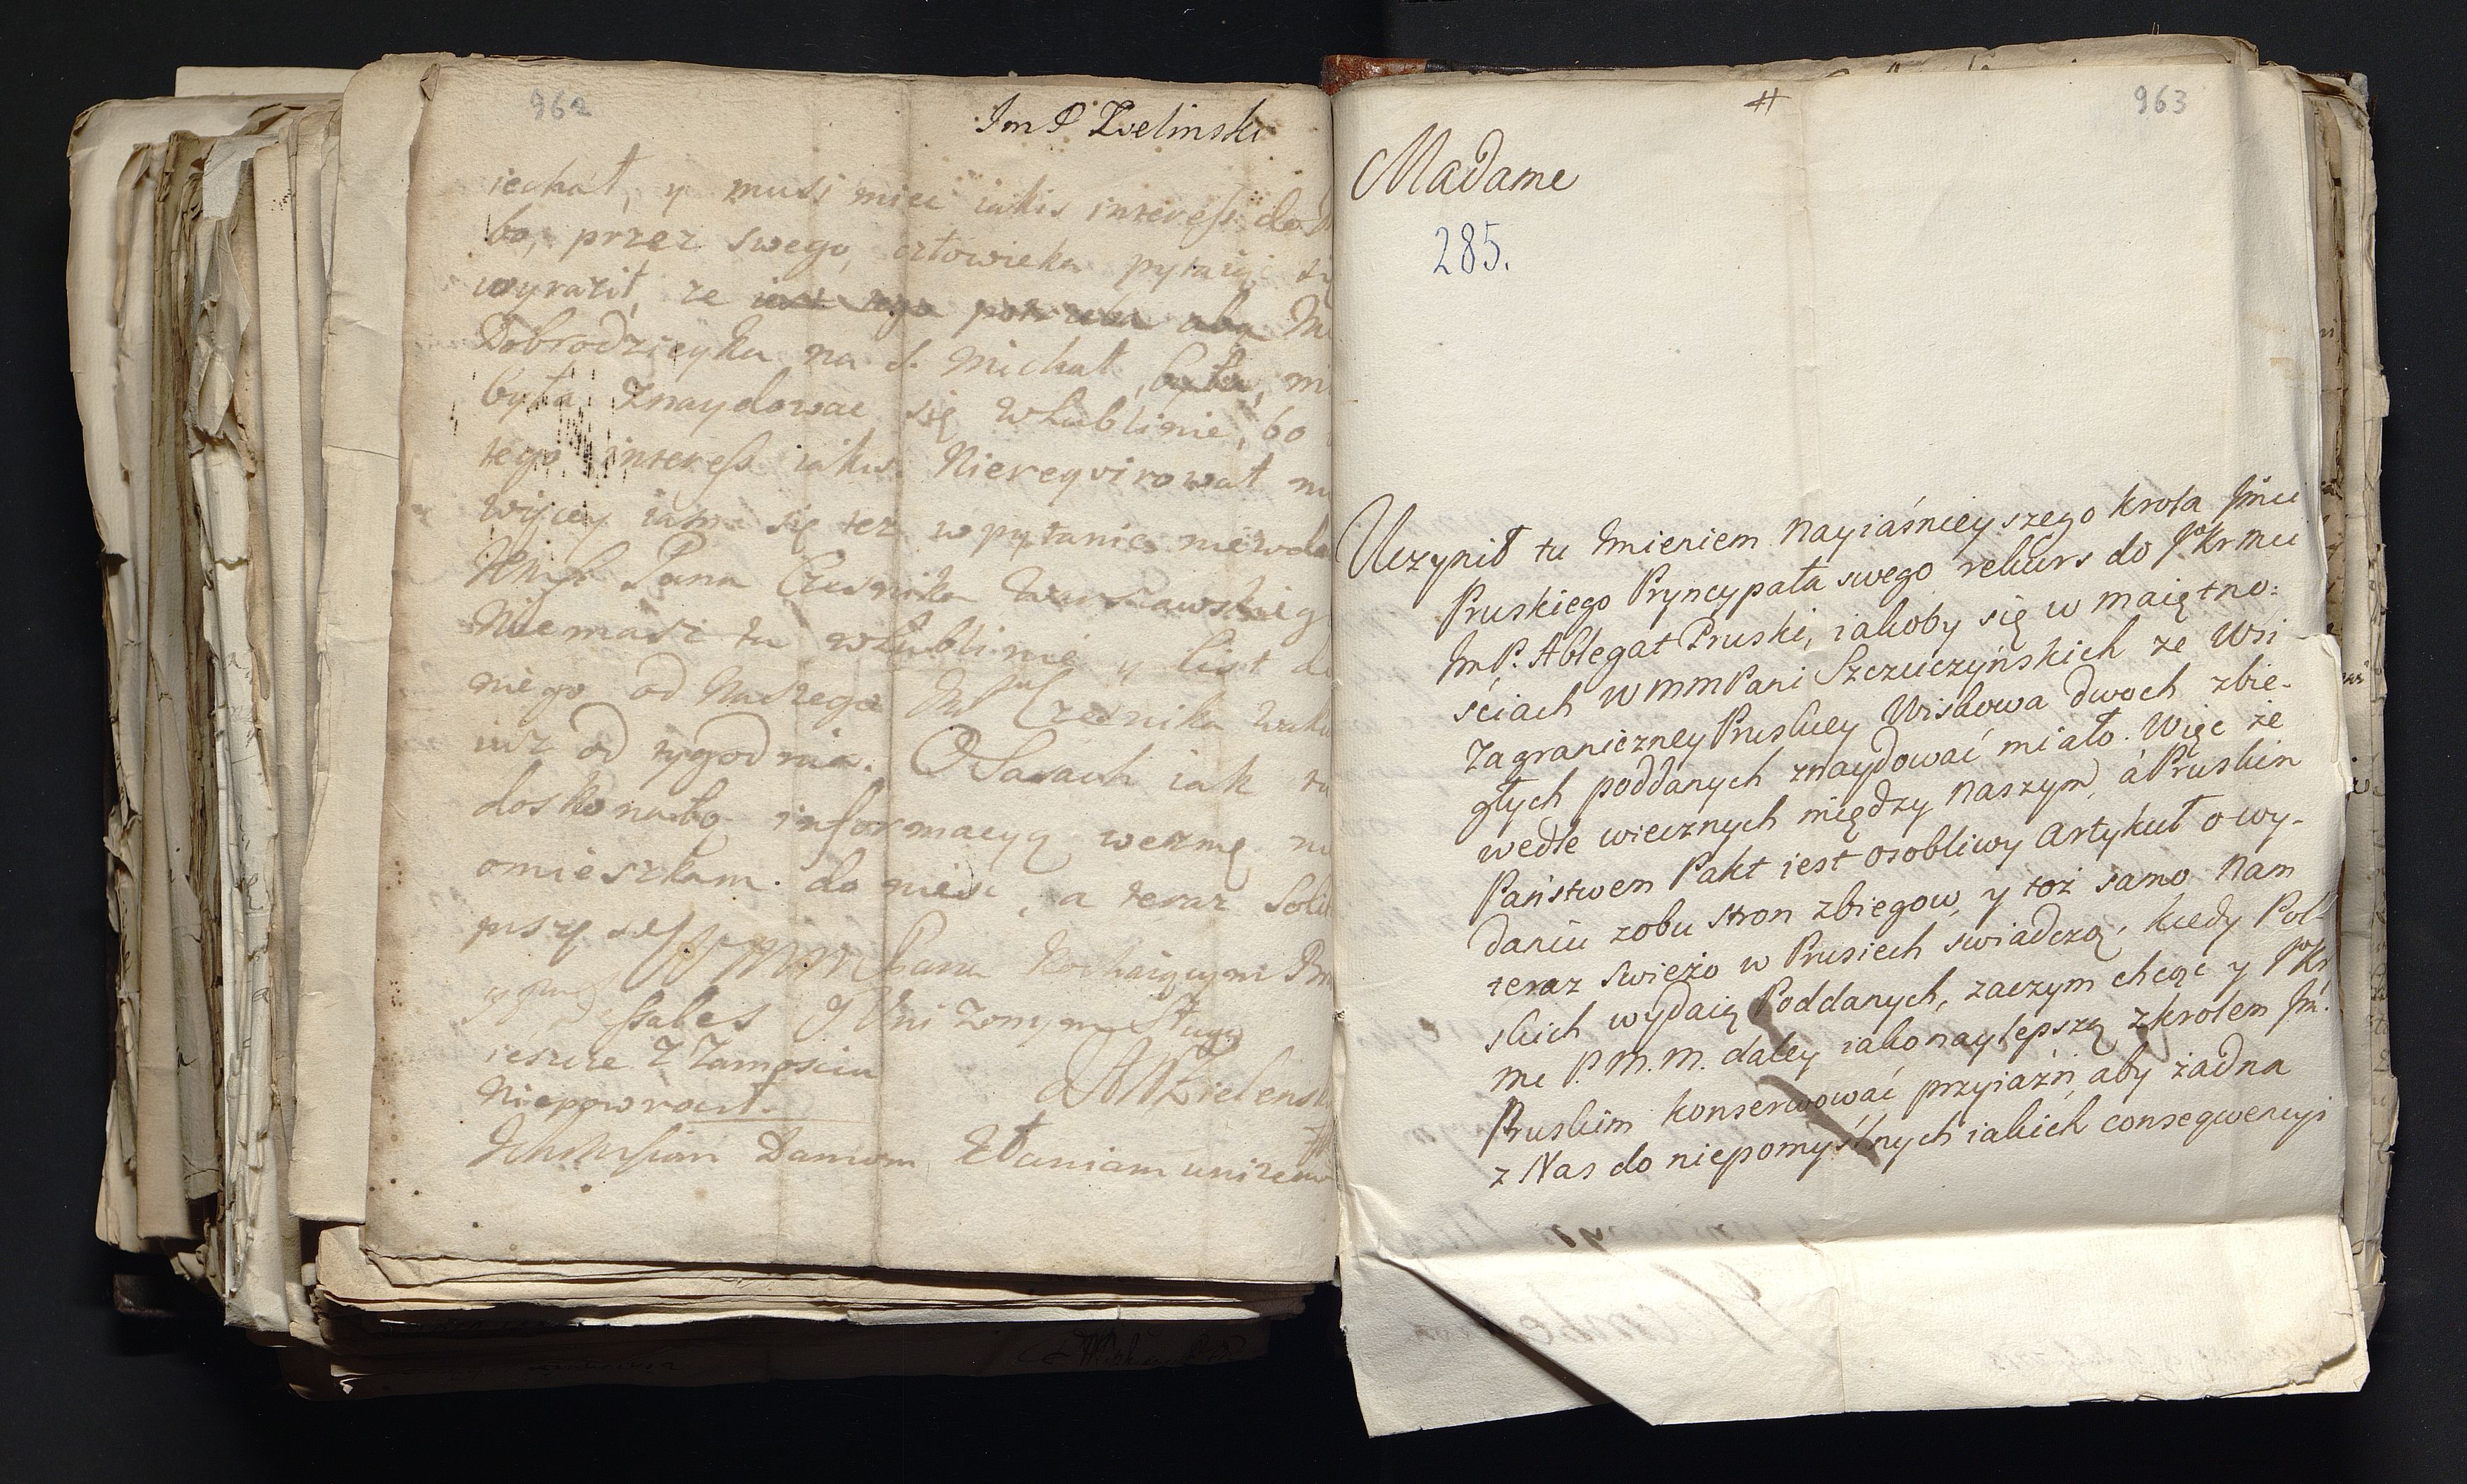 962
Im P Zielinski
iechał, y musi miec iakis interess do
bo, przez swego, człowieka pytaiąc się
wyraził, ze iest tego potrzeba aby
Dobrodzieyka na S. Michał była,
była Znaydowac się w Lublinie, bo
tego interess iakis. Niereqvirował
więcey iam się tez w pytanie niewda
Pana Czesnika Warszawskieg
Niemasz tu w Lublinie y list do
niego od naszego Czesnika
iuz od tygodnia. O Sasach iak
doskonałą informacyą wezmę
omieszkam doniesc, a teraz
pszy się WMM Pana Kochaiącym
y Uni zonym Sługą
ieszcze Z Zamoscia
Niepowrocił.
Damom Kłaniam unizenie
963
Madame
285.
Uczynił tu Imieniem Nayiaśnieyszego Krola Jmci
Pruskiego Pryncypała swego rekurs do JoKrMci
ImP. Ablegat Pruski, iakoby się w maiętno:
ściach WMMPani Szczuczyńskich ze Wsi
Zagraniczney Pruskiey Wiskowa dwoch zbie-
głych poddanych znaydować miało. Więc że
wedle wiecznych między Naszym, á Pruskim
Państwem Pakt iest osobliwy Artykuł o wy-
daniu zobu stron zbiegow, y toż samo Nam
teraz swieżo w Prusiech swiadczą, kiedy Pol-
skich wydaią Poddanych, zaczym chcąc y JoKr
Mc P. M. M. daley iako naylepszą z Krolem Jm.
Pruskim konserwować przyiaźń, aby żadna
z Nas do niepomyślnych iakich consegwencyi